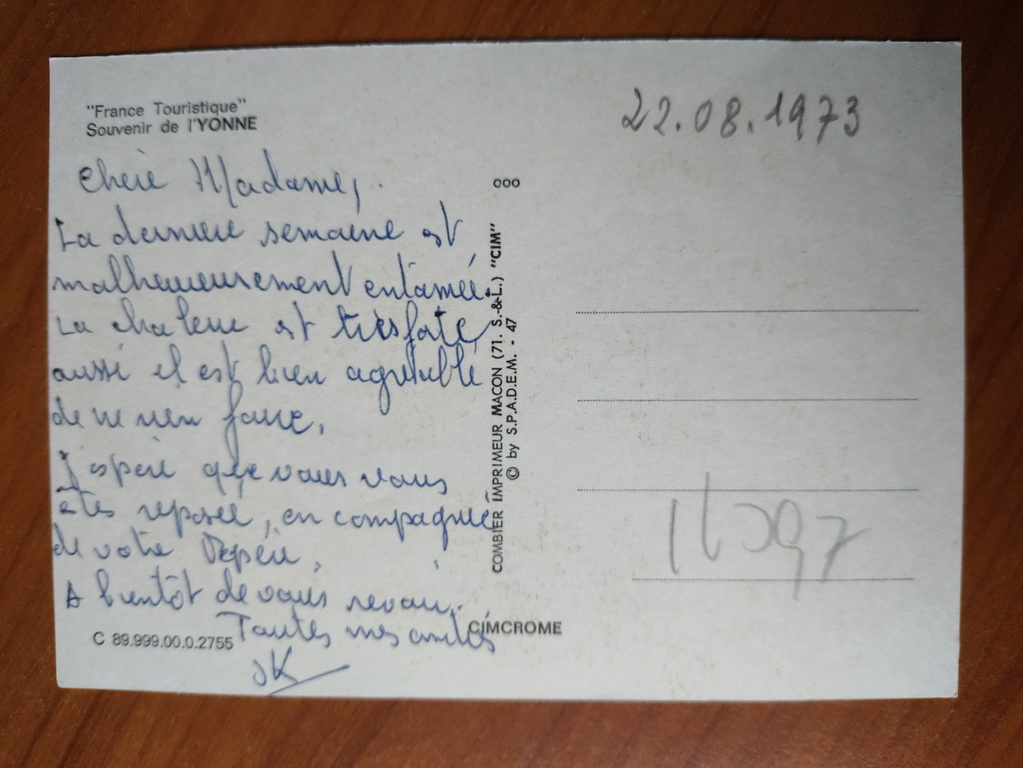 "France Touristique"
Souvenir de l'YONNE
22.08.1973
Chère Madame,
La dernière semaine est
malheureusement entamée.
La chaleur est très forte,
aussi il est bien agréable
de ne rien faire.
J'espère que vous vous
êtes reposée, en compagnie
de votre
A bientôt de vous revoir.
Toutes mes amitiés
JK
C 89.999.00.0.2755
ooo
COMBIER IMPRIMEUR MACON (71. S.-&-L.) "CIM"
© by S.P.A.D.E.M. - 47
CIMCROME